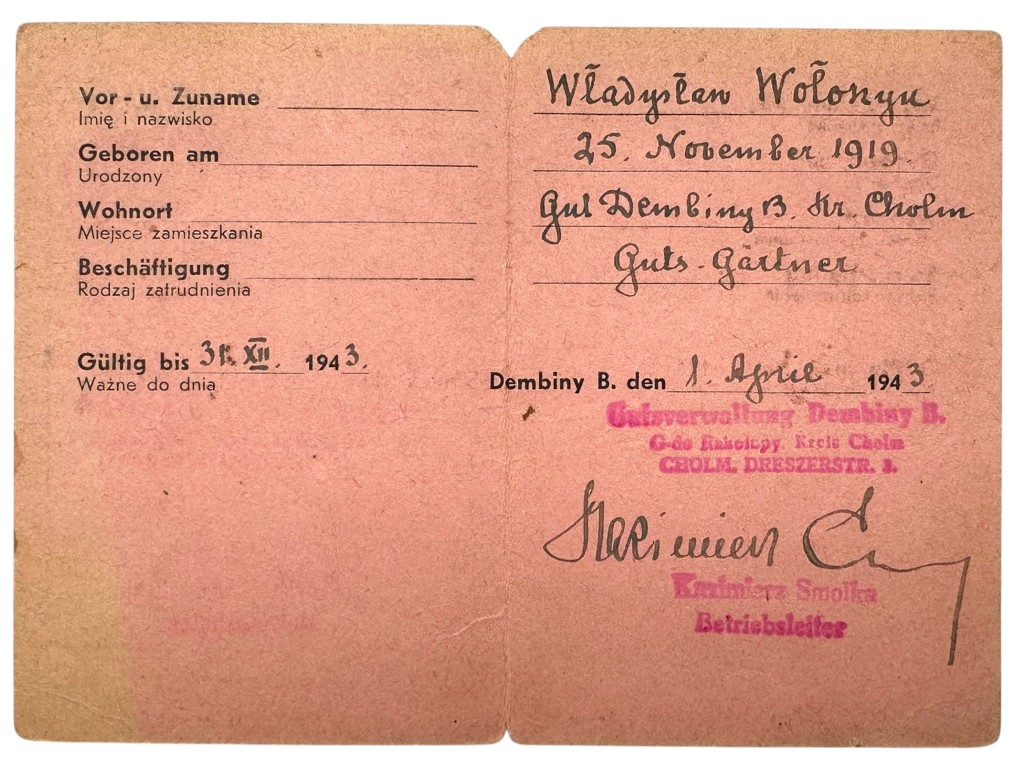 Vor- u. Zuname
Imię i nazwisko
Geboren am
Urodzony
Wohnort
Miejsce zamieszkania
Beschäftigung
Rodzaj zatrudnienia
Gültig bis 31. XII. 1943.
Ważne do dnia
Władysław Wołoszyn
25. November 1919.
Gut Dembiny B. Kr. Cholm
Guts-Gärtner
Dembiny B. den 1. April 1943
Gutsverwaltung Dembiny B.
G-de Rakołupy, Kreis Cholm
CHOLM, DRESZERSTR. 3.
Kazimierz
Kazimierz Smolka
Betriebsleiter